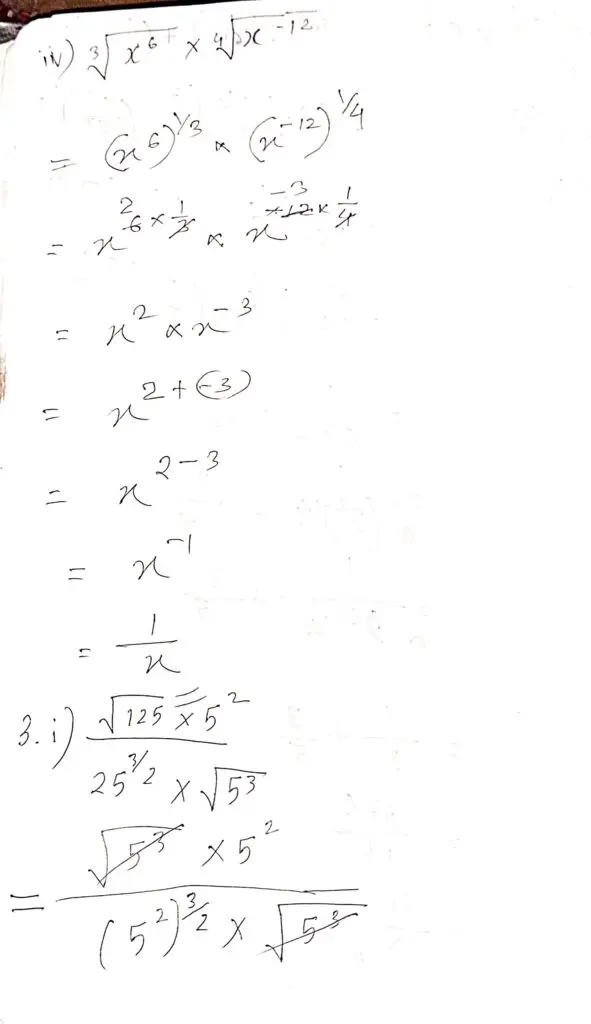 iv) ∛(x⁶) × ∜(x⁻¹²)
= (x⁶)^(1/3) × (x⁻¹²)^(1/4)
= x^(6 × 1/3) × x^(-12 × 1/4)
= x² × x⁻³
= x^(2+(-3))
= x^(2-3)
= x⁻¹
= 1/x
3. i) (√125 × 5²) / (25^(3/2) × √5³)
= (√5³ × 5²) / ((5²)^(3/2) × √5³)